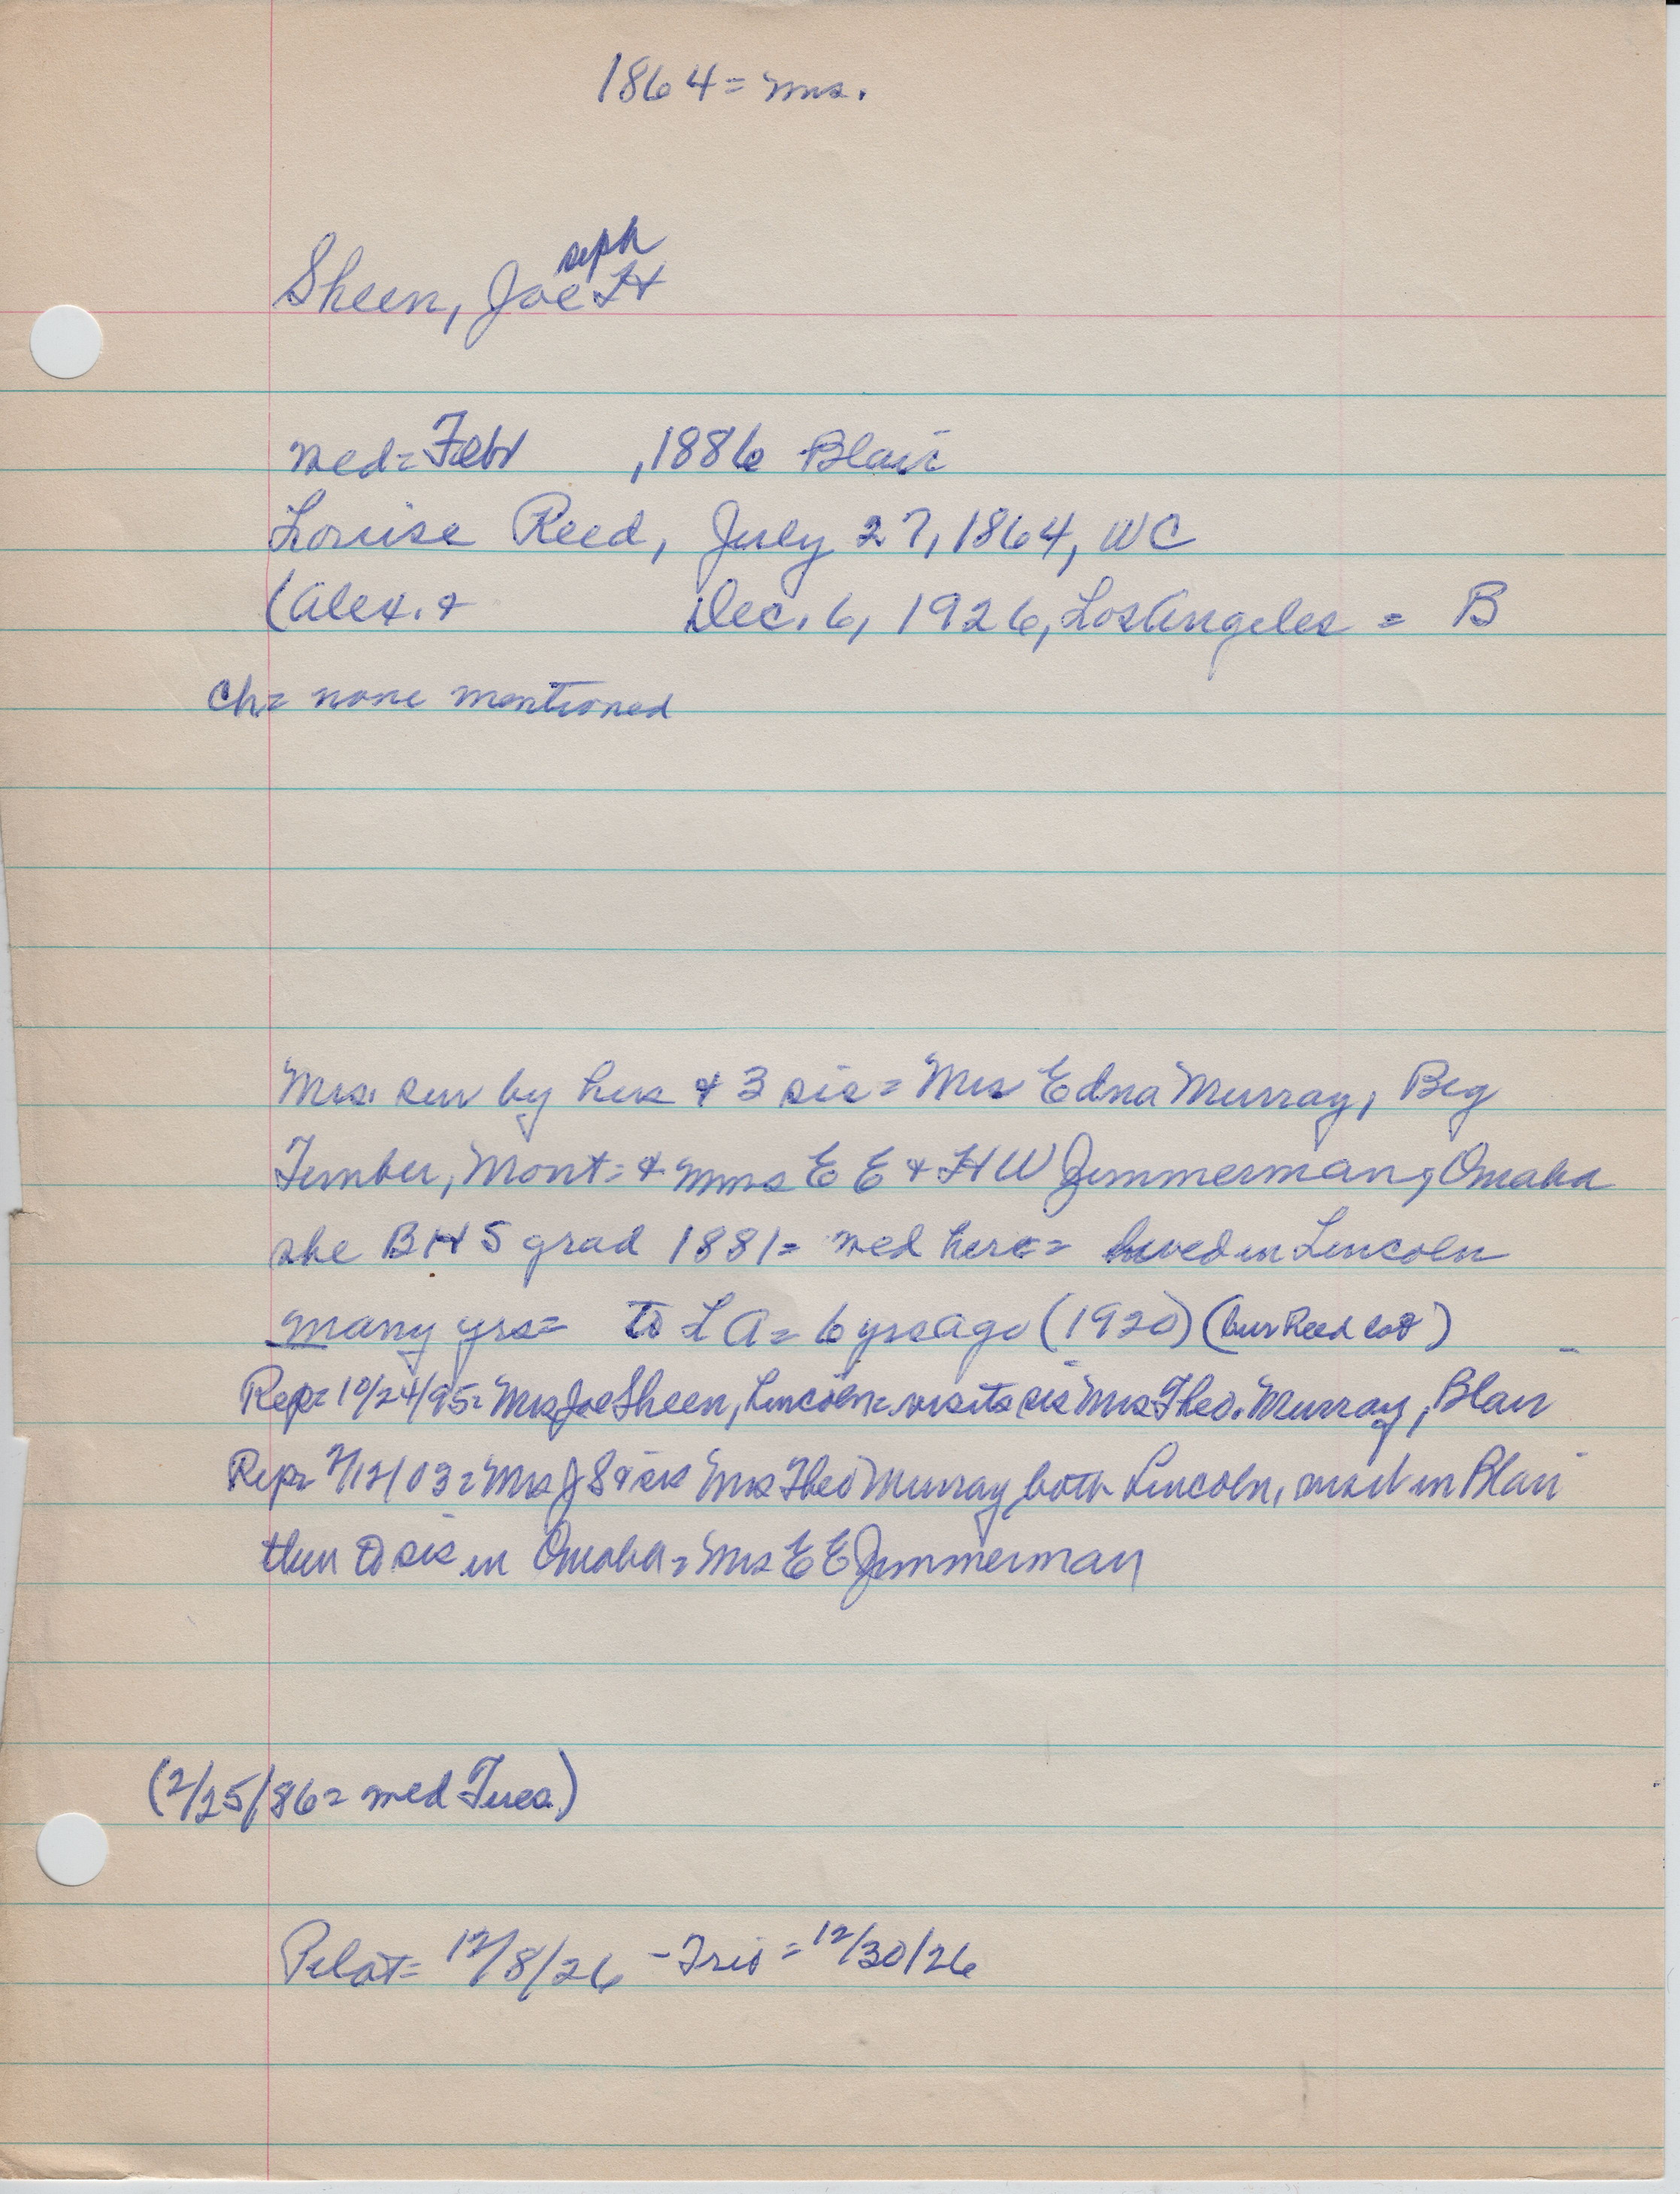 1864 = mrs.
seph
Sheen, Joe H
wed = Febr , 1886 Blair
Louise Reed, July 27, 1864, WC
(Alex. + Dec. 6, 1926, Los Angeles = B
Ch = none mentioned
Mrs. sur by hus + 3 sis = Mrs Edna Murray, Big
Timber, Mont = + Mmes E E + H W Zimmerman, Omaha
she BHS grad 1881 = wed here = lived in Lincoln
many yrs = to LA = 6 yrs ago (1920) (bur Reed lot)
Rep = 10/24/95 = Mrs Joe Sheen, Lincoln = visits sis Mrs Theo. Murray, Blair
Rep = 7/12/03 = Mrs J S + sis Mrs Theo Murray both Lincoln, visit in Blair
then to sis in Omaha = Mrs E E Zimmerman
(2/25/86 = wed Tues.)
Pilot = 12/8/26 - Tris = 12/30/26